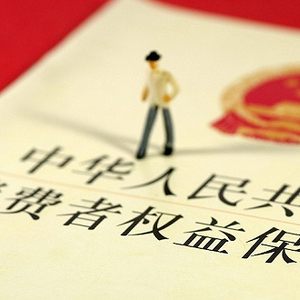 中华人民共
消费者权益保